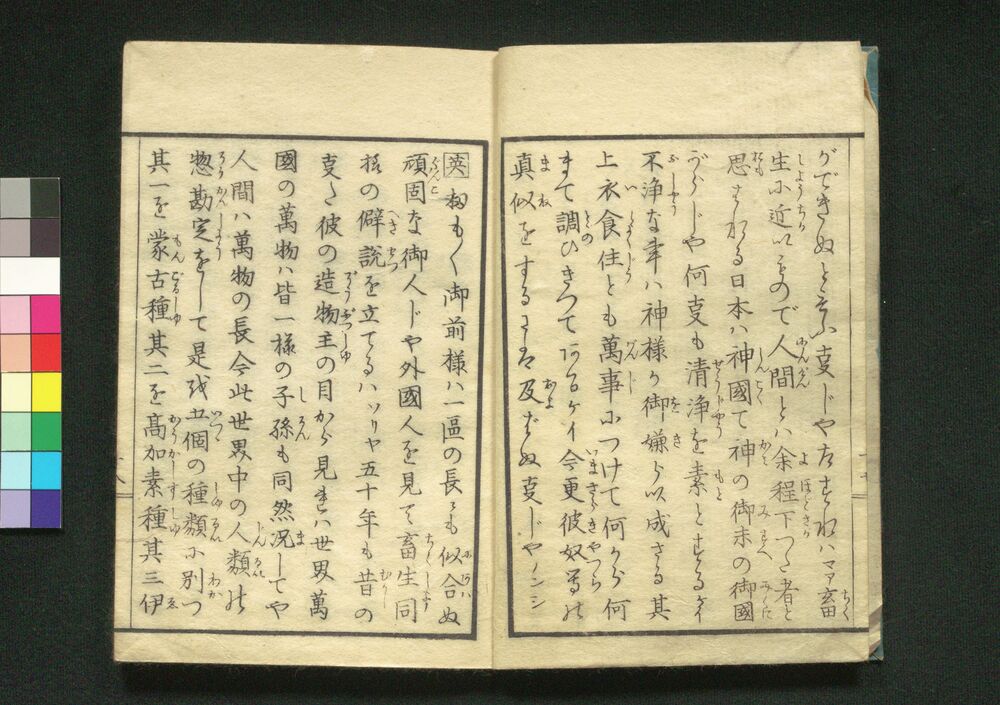 ができぬと云ふ事じや左すればマア畜
生に近いもので人間とは余程下つた者と
思はれる日本は神國で神の御末の御國
だらじや何事も清浄を素とするケイ
不浄な事は神様が御嫌ら以成さる其
上衣食住とも萬事につけて何から何
まで調ひきつて居るケイ今更彼奴等の
真似をするには及ばぬ事じやノンシ
英 扨もく御前様ハ一區の長にも似合ぬ
頑固な御人じや外國人を見て畜生同
様の僻説を立てるハソリヤ五十年も昔の
事で彼の造物主の目から見ればハ世界萬
國の萬物ハ皆一様の子孫も同然况してや
人間ハ萬物の長今此世界中の人類の
惣勘定をして是を五個の種類に別つ
其一を蒙古種其二を高加索種其三伊